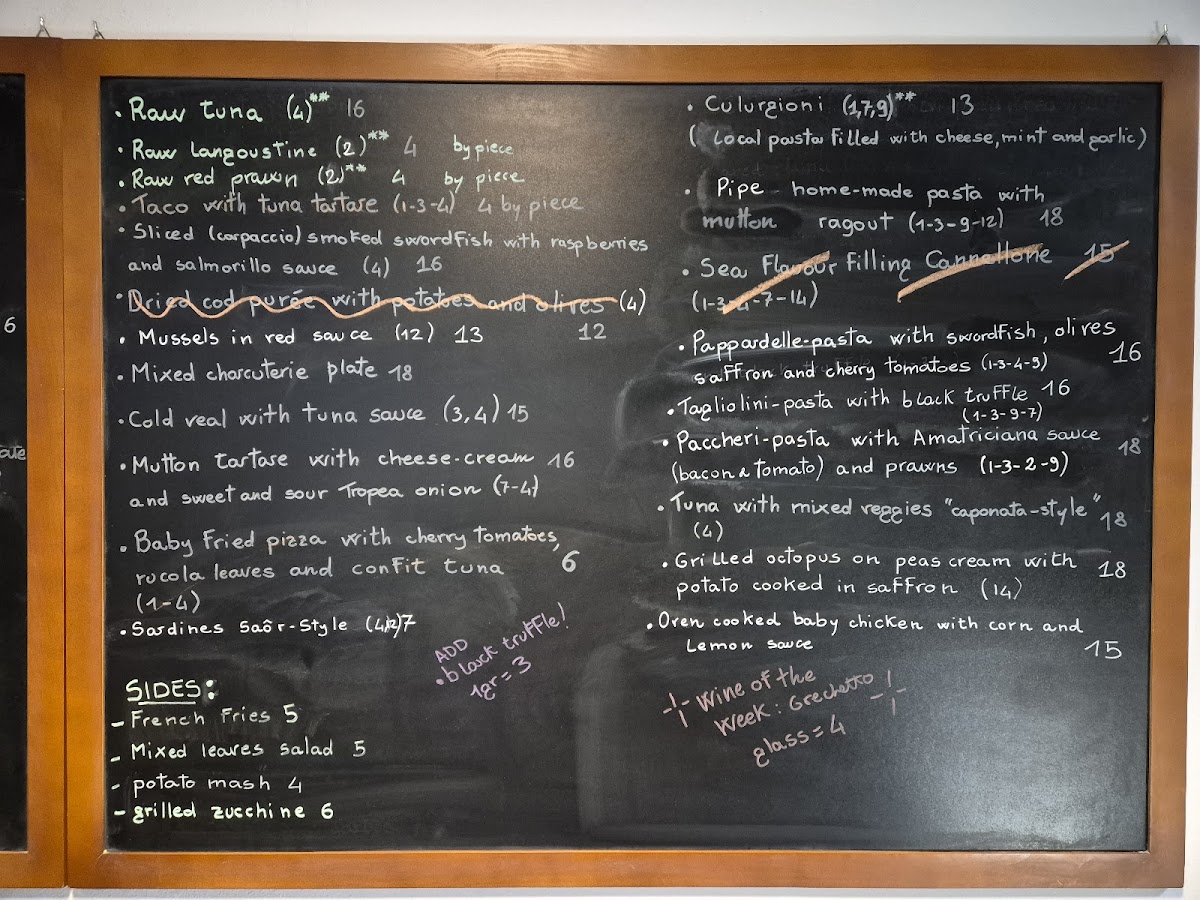 • Raw tuna (4)** 16
• Raw langoustine (2)** 4 by piece
• Raw red prawn (2)** 4 by piece
• Taco with tuna tartare (1-3-4) 4 by piece
• Sliced (carpaccio) smoked swordfish with raspberries
and salmorillo sauce (4) 16
• Dried cod purée with potatoes and olives (4)
12
• Mussels in red sauce (12) 13
• Mixed charcuterie plate 18
• Cold veal with tuna sauce (3,4) 15
• Mutton tartare with cheese-cream 16
and sweet and sour Tropea onion (7-4)
• Baby Fried pizza with cherry tomatoes,
rucola leaves and confit tuna 6
(1-4)
• Sardines Saôr-Style 7
ADD
• black truffle!
1gr = 3
SIDES:
- French Fries 5
- Mixed leaves salad 5
- potato mash 4
- grilled zucchine 6
• Culurgioni (1,7,9)** 13
( Local pasta filled with cheese, mint and garlic)
• Pipe - home-made pasta with
mutton ragout (1-3-9-12) 18
• Sea Flavour Filling Cannellone 15
(1-3-4-7-14)
• Pappardelle-pasta with swordfish, olives
saffron and cherry tomatoes (1-3-4-9) 16
• Tagliolini-pasta with black truffle 16
(1-3-9-7)
• Paccheri-pasta with Amatriciana sauce 18
(bacon & tomato) and prawns (1-3-2-9)
• Tuna with mixed veggies "caponata-style" 18
(4)
• Grilled octopus on peas cream with 18
potato cooked in saffron (14)
• Oven cooked baby chicken with corn and
Lemon sauce 15
Wine of the
Week: Grechetto
glass = 4
6